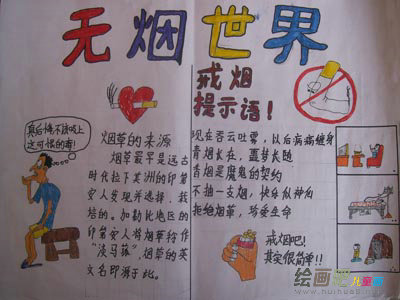 无烟世界
真后悔不该吸上
这可恨的毒!
烟草的来源
烟草最早是远古
时代拉丁美洲的印第
安人发现并选择、栽
培的。加勒比地区的印
第安人将烟草称作
"淡马菰"烟草的英
文名即源于此。
戒烟
提示语!
现在吞云吐雾,以后病痛缠身
青烟长在,噩梦长随
青烟是魔鬼的契约
不抽一支烟,快乐似神仙
拒绝烟草,珍爱生命
戒烟吧!
其实很简单!!
绘画吧儿童画
www.huihua8.net